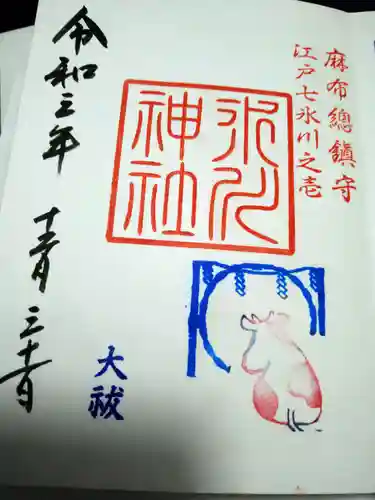 麻布總鎮守
江戸七氷川之壱
氷川
神社
令和三年
十二月三十一日
大祓